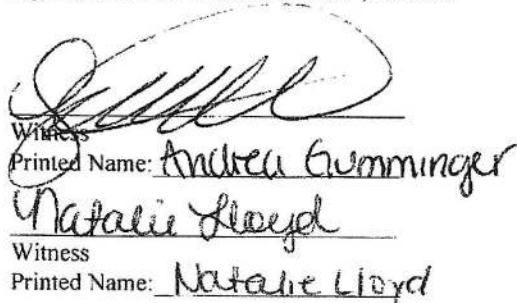 Witness
Printed Name: Andrea Gumminger
Natalie Lloyd
Witness
Printed Name: Natalie Lloyd